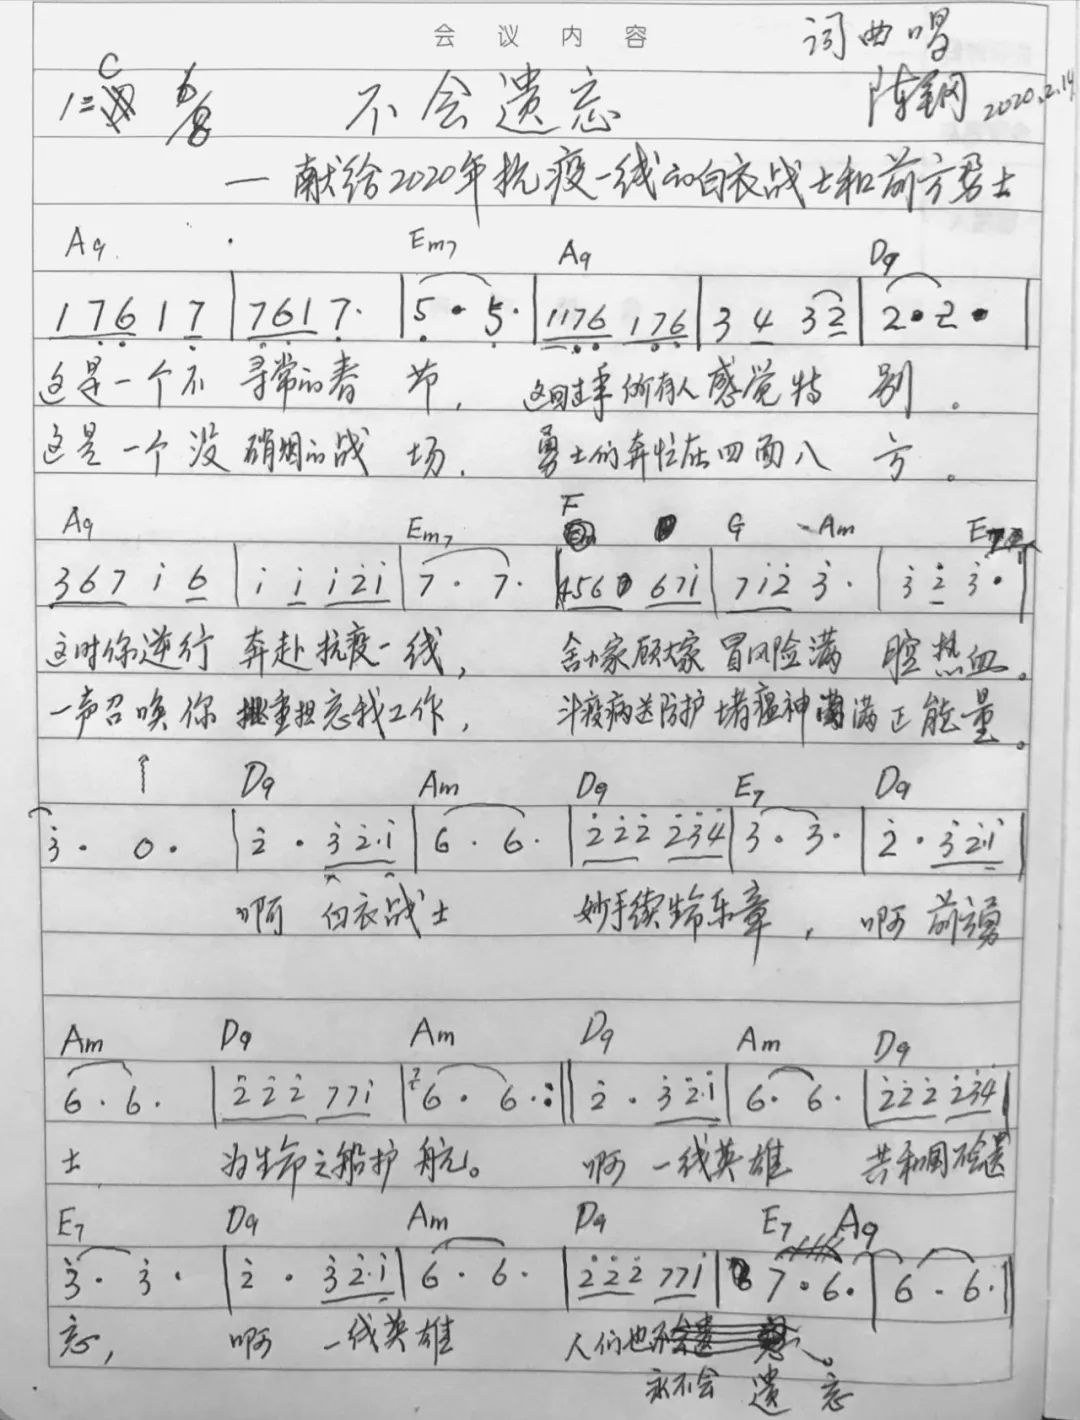 会议内容
词曲唱
1=C 6/8 不会遗忘 陈钢 2020.2.14
— 献给2020年抗疫一线的白衣战士和前方勇士
A9 Em7 A9 D9
1 7 6 1 7 | 7 6 1 7· | 5· 5· | 1176 176 | 3 4 3 2 | 2· 2· |
这是一个不 寻常的春 节, 这回过季所有人感觉特 别。
这是一个没 硝烟的战 场, 勇士们奔忙在四面八 方。
A9 Em7 F G Am E
3 6 7 i 6 | i i i 2 i | 7· 7· | 456 67i | 7i2 3· | 3 2 3· |
这时你逆行 奔赴抗疫一线, 舍小家顾大家 冒风险满 腔热血。
一声召唤你 挑重担忘我工作, 斗疫病送防护 堵瘟神满满正能量。
D9 Am D9 E7 D9
3· 0· | 2· 3 2·i | 6· 6· | 222 234 | 3· 3· | 2· 3 2·i |
啊 白衣战士 妙手续生命乐章, 啊 前方勇
Am D9 Am D9 Am D9
6· 6· | 222 77i | 6· 6· :|| 2· 3 2·i | 6· 6· | 222 234 |
士 为生命之船护航。 啊 一线英雄 共和国不会遗
E7 D9 Am D9 E7 A9
3· 3· | 2· 3 2·i | 6· 6· | 222 77i | 7· 6· | 6· 6· |
忘, 啊 一线英雄 人们也不会遗 忘。
永不会 遗 忘